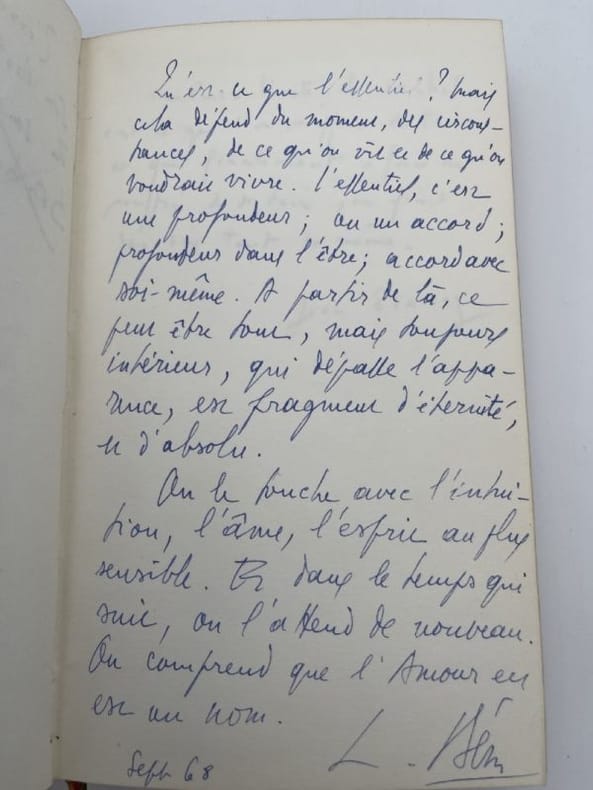 Qu'est-ce que l'essentiel ? Mais
cela dépend du moment, des circons-
tances, de ce qu'on vit et de ce qu'on
voudrait vivre. L'essentiel, c'est
une profondeur ; ou un accord ;
profondeur dans l'être ; accord avec
soi-même. A partir de là, ce
peut être tout, mais toujours
intérieur, qui dépasse l'appa-
rence, est fragment d'éternité,
et d'absolu.
On le touche avec l'intui-
tion, l'âme, l'esprit au plus
sensible. Et dans le temps qui
suit, on l'attend de nouveau.
On comprend que l'Amour en
est un nom.
L.
Sept 68